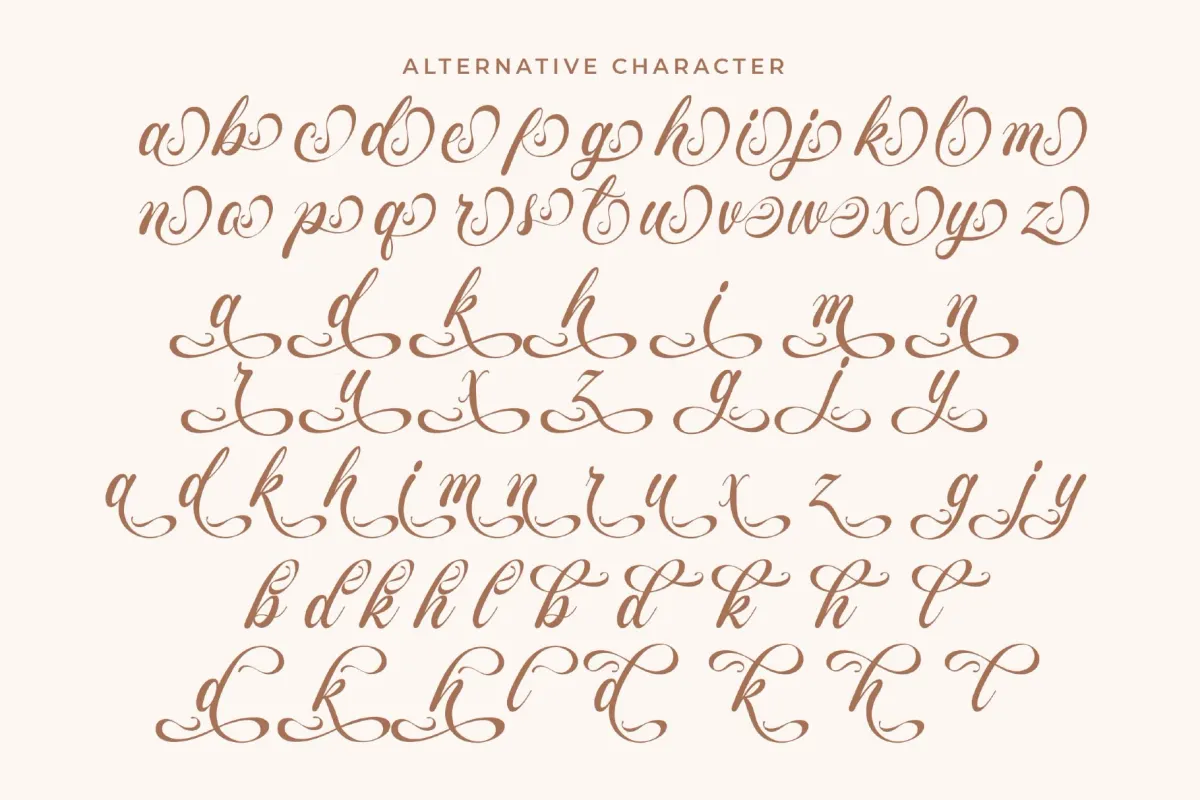 ALTERNATIVE CHARACTER
a b c d e f g h i j k l m
n o p q r s t u v w x y z
a d k h i m n
r u x z g j y
a d k h i m n r u x z g j y
b d k h l b d k h l
d k h l d k h l